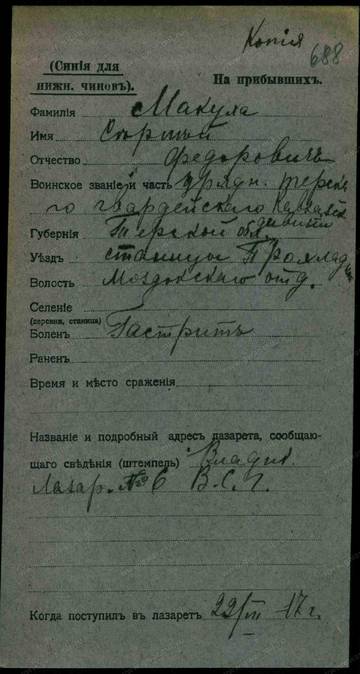 Копія
688
(Синія для
нижн. чиновъ).
На прибывшихъ.
Фамилія Макуха
Имя Сергѣй
Отчество Федоровичъ
Воинское званіе и часть урядн. терска
го гвардейскаго
дивиз
Губернія Терской обл.
Уѣздъ станицы Прохлад
Волость Моздокскаго отд.
Селеніе
(деревня, станица)
Боленъ Гастритъ
Раненъ
Время и мѣсто сраженія
Названіе и подробный адресъ лазарета, сообщаю-
щаго свѣдѣнія (штемпель) Владик.
Лазар. № 6 В.С.Г.
Когда поступилъ въ лазаретъ 22/III 17 г.